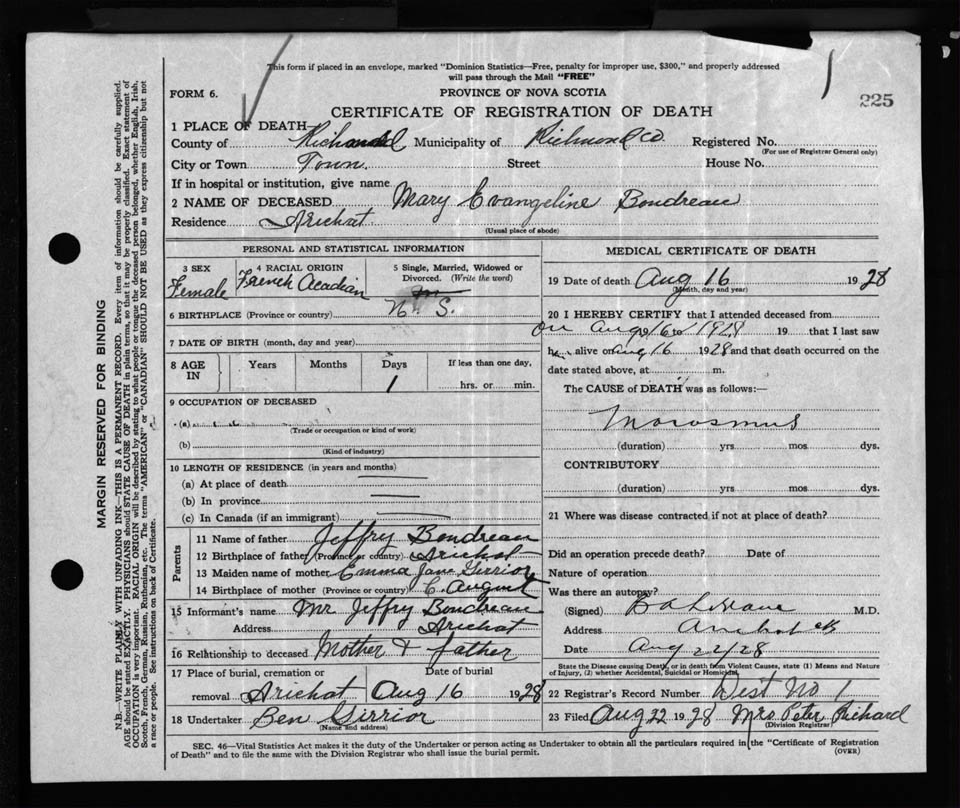 This form if placed in an envelope, marked "Dominion Statistics—Free, penalty for improper use, $300," and properly addressed
will pass through the Mail "FREE"
FORM 6.
PROVINCE OF NOVA SCOTIA
225
CERTIFICATE OF REGISTRATION OF DEATH
1 PLACE OF DEATH—
County of Richmond Municipality of Richmond Co. Registered No.
(For use of Registrar General only)
City or Town Town. Street House No.
If in hospital or institution, give name
2 NAME OF DECEASED Mary Evangeline Boudreau
Residence Arichat
(Usual place of abode)
PERSONAL AND STATISTICAL INFORMATION
3 SEX
Female
4 RACIAL ORIGIN
French Acadian
5 Single, Married, Widowed or Divorced. (Write the word)
6 BIRTHPLACE (Province or country) N. S.
7 DATE OF BIRTH (month, day and year)
8 AGE IN Years Months Days If less than one day,
1 hrs. or min.
9 OCCUPATION OF DECEASED
(a)
(Trade or occupation or kind of work)
(b)
(Kind of industry)
10 LENGTH OF RESIDENCE (in years and months)
(a) At place of death
(b) In province
(c) In Canada (if an immigrant)
Parents
11 Name of father Jeffry Boudreau
12 Birthplace of father (Province or country) Arichat
13 Maiden name of mother Emma Jane Girrior
14 Birthplace of mother (Province or country) C. August
15 Informant's name Mr Jeffry Boudreau
Address Arichat
16 Relationship to deceased Mother & father
17 Place of burial, cremation or removal Arichat
Date of burial
Aug 16 1928
18 Undertaker Ben Girrior
(Name and address)
MEDICAL CERTIFICATE OF DEATH
19 Date of death Aug 16 1928
(Month, day and year)
20 I HEREBY CERTIFY that I attended deceased from
on Aug 16 to 1928 19 that I last saw
her alive on Aug 16 1928 and that death occurred on the
date stated above, at m.
The CAUSE of DEATH was as follows:—
Marasmus
(duration) yrs mos dys.
CONTRIBUTORY
(duration) yrs mos dys.
21 Where was disease contracted if not at place of death?
Did an operation precede death? Date of
Nature of operation
Was there an autopsy?
(Signed) M.D.
Address Arichat
Date Aug 22/28
State the Disease causing Death, or in death from Violent Causes, state (1) Means and Nature
of Injury, (2) whether Accidental, Suicidal or Homicidal.
22 Registrar's Record Number Dist No 1
23 Filed Aug 22 1928 Mrs Peter Richard
(Division Registrar)
SEC. 46—Vital Statistics Act makes it the duty of the Undertaker or person acting as Undertaker to obtain all the particulars required in the "Certificate of Registration
of Death" and to file the same with the Division Registrar who shall issue the burial permit.
(OVER)
MARGIN RESERVED FOR BINDING
N.B.—WRITE PLAINLY WITH UNFADING INK—THIS IS A PERMANENT RECORD. Every item of information should be carefully supplied.
AGE should be stated EXACTLY. PHYSICIANS should STATE CAUSE OF DEATH in plain terms, so that it may be properly classified. Exact statement of
OCCUPATION is very important. RACIAL ORIGIN will be described by stating to what people or tongue the deceased person belonged, whether English, Irish,
Scotch, French, German, Russian, Ruthenian, etc. The terms "AMERICAN" or "CANADIAN" SHOULD NOT BE USED as they express citizenship but not
a race or people. See instructions on back of Certificate.